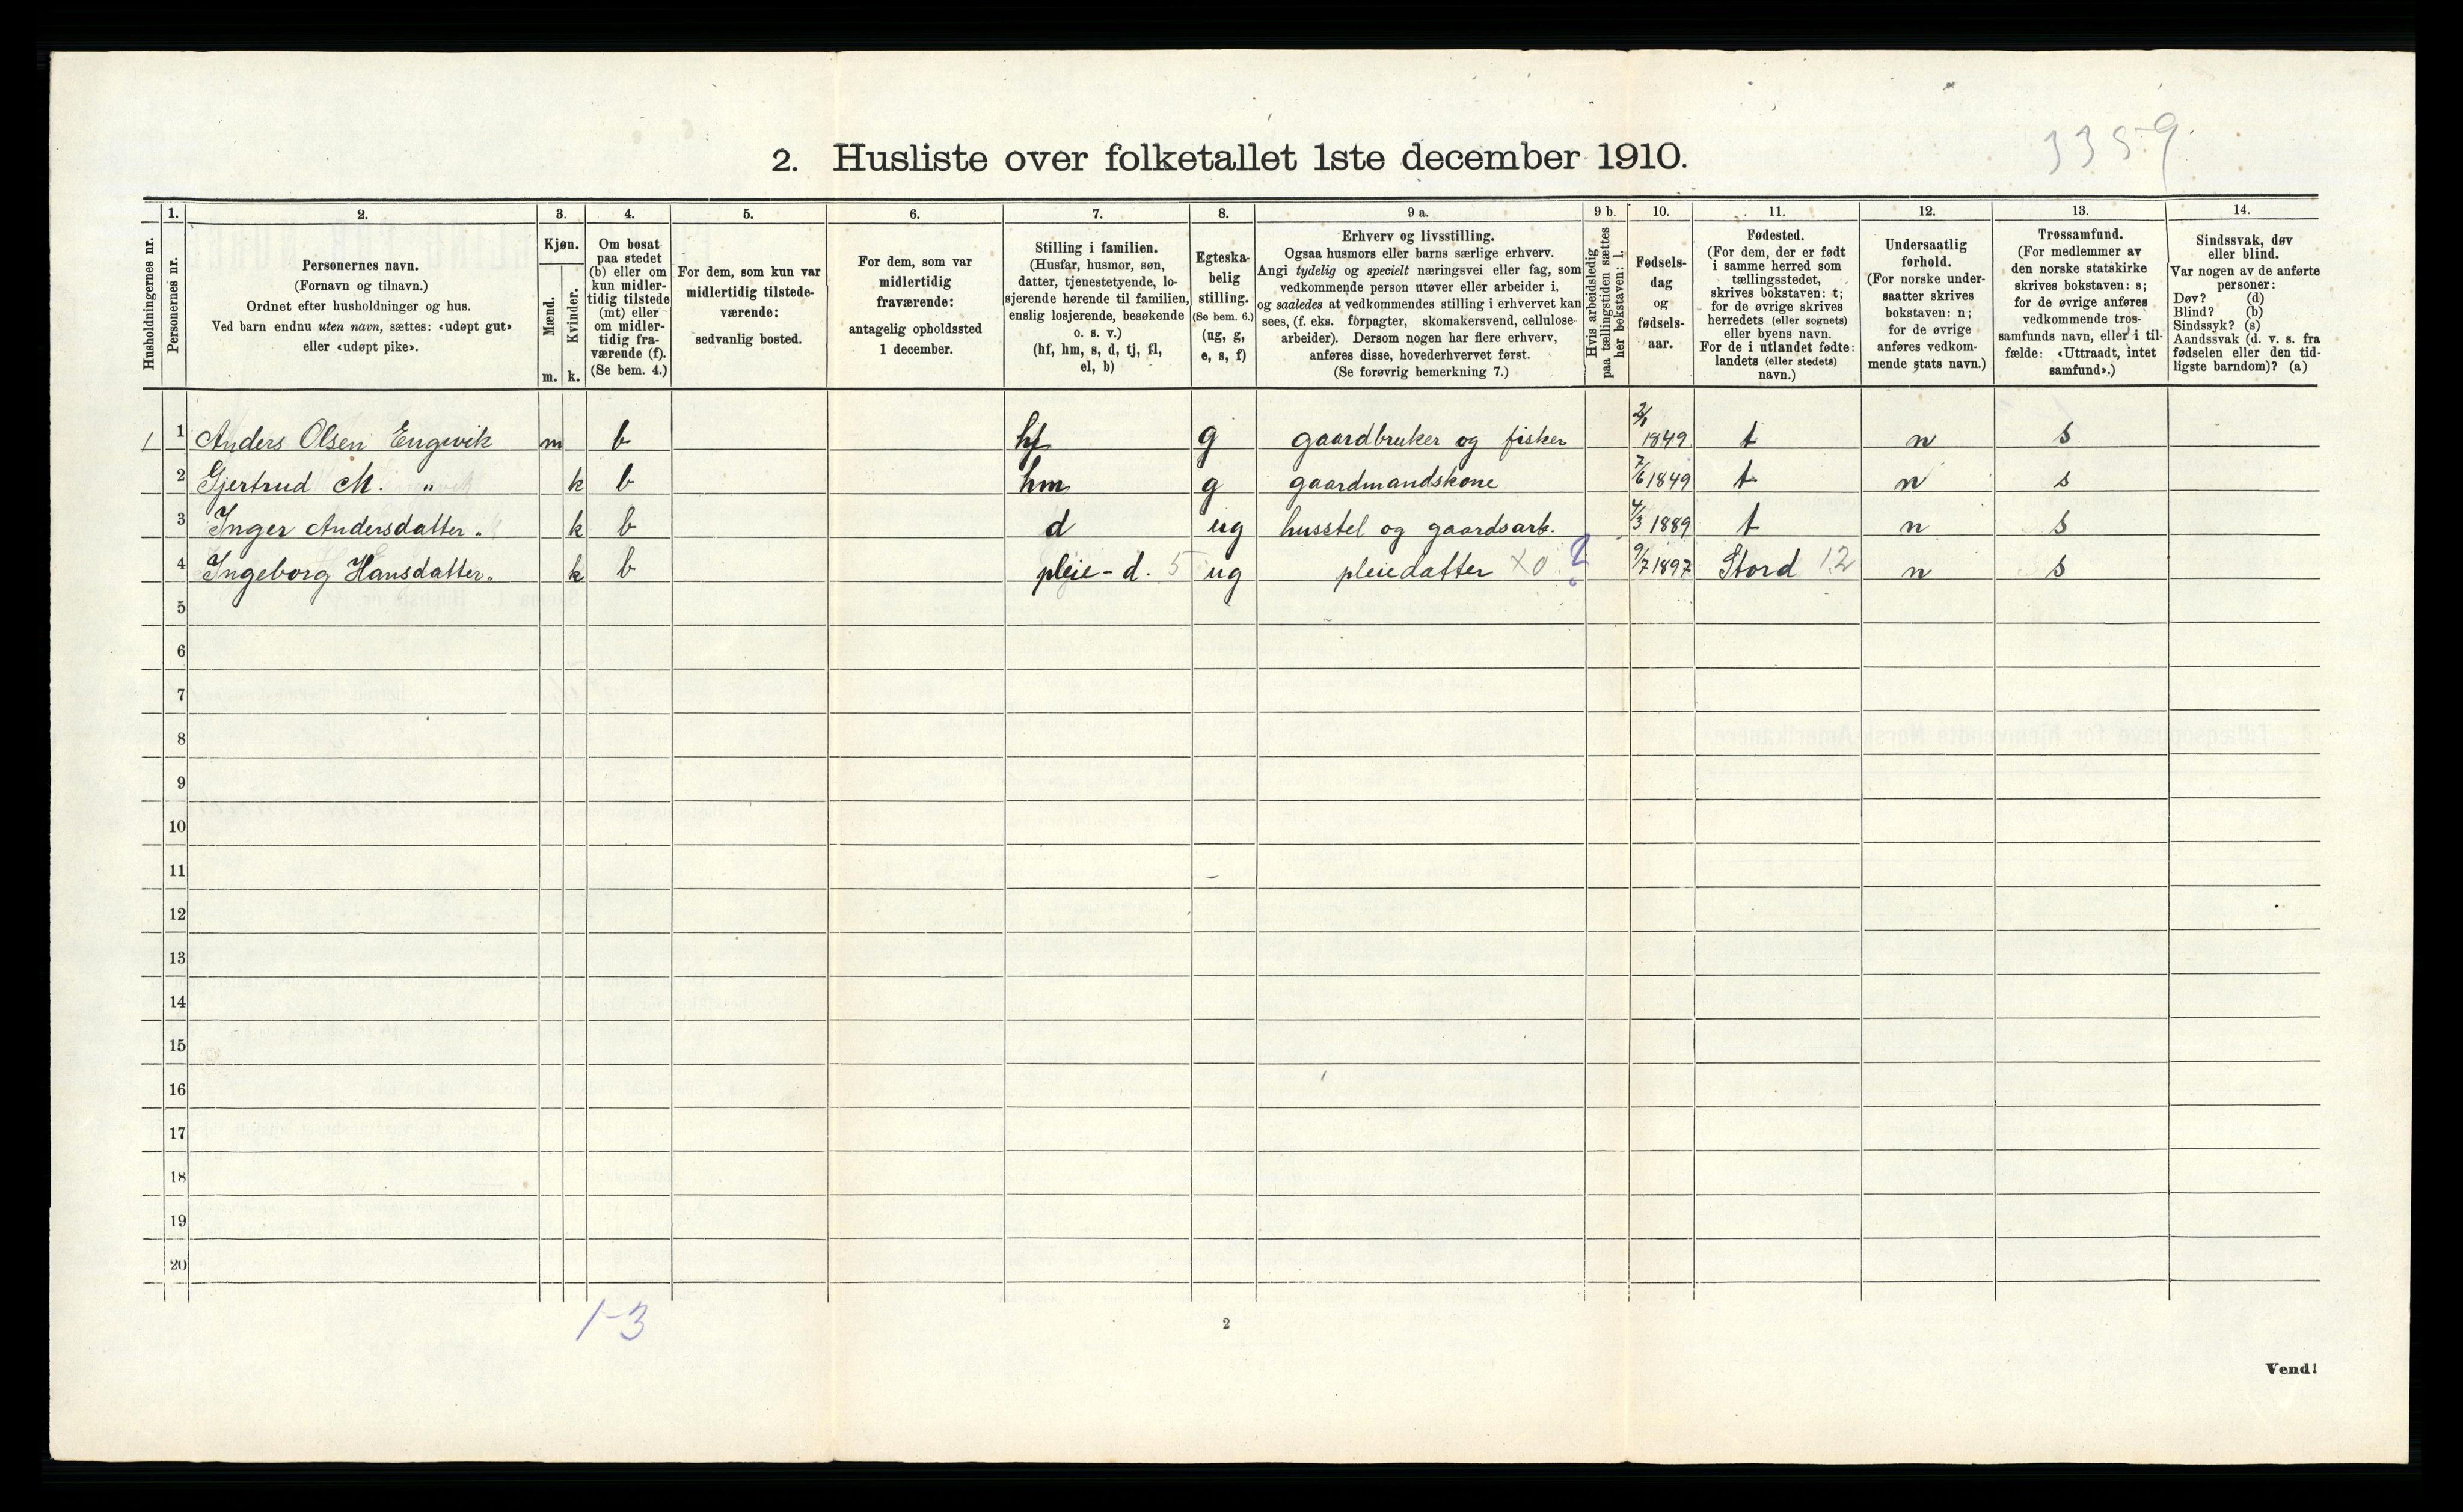 3359
2. Husliste over folketallet 1ste december 1910.
Husholdningernes nr.
1.
Personernes nr.
2.
Personernes navn.
(Fornavn og tilnavn.)
Ordnet efter husholdninger og hus.
Ved barn endnu uten navn, sættes: «udøpt gut»
eller «udøpt pike».
3.
Kjøn.
Mænd.
Kvinder.
m. k.
4.
Om bosat
paa stedet
(b) eller om
kun midler-
tidig tilstede
(mt) eller
om midler-
tidig fra-
værende (f).
(Se bem. 4.)
5.
For dem, som kun var
midlertidig tilstede-
værende:
sedvanlig bosted.
6.
For dem, som var
midlertidig
fraværende:
antagelig opholdssted
1 december.
7.
Stilling i familien.
(Husfar, husmor, søn,
datter, tjenestetyende, lo-
sjerende hørende til familien,
enslig losjerende, besøkende
o. s. v.)
(hf, hm, s, d, tj, fl,
el, b)
8.
Egteska-
belig
stilling.
(Se bem. 6.)
(ug, g,
e, s, f)
9 a.
Erhverv og livsstilling.
Ogsaa husmors eller barns særlige erhverv.
Angi tydelig og specielt næringsvei eller fag, som
vedkommende person utøver eller arbeider i,
og saaledes at vedkommendes stilling i erhvervet kan
sees, (f. eks. forpagter, skomakersvend, cellulose-
arbeider). Dersom nogen har flere erhverv,
anføres disse, hovederhvervet først.
(Se forøvrig bemerkning 7.)
9 b.
Hvis arbeidsledig
paa tællingstiden sættes
her bokstaven: l.
10.
Fødsels-
dag
og
fødsels-
aar.
11.
Fødested.
(For dem, der er født
i samme herred som
tællingsstedet,
skrives bokstaven: t;
for de øvrige skrives
herredets (eller sognets)
eller byens navn.
For de i utlandet fødte:
landets (eller stedets)
navn.)
12.
Undersaatlig
forhold.
(For norske under-
saatter skrives
bokstaven: n;
for de øvrige
anføres vedkom-
mende stats navn.)
13.
Trossamfund.
(For medlemmer av
den norske statskirke
skrives bokstaven: s;
for de øvrige anføres
vedkommende tros-
samfunds navn, eller i til-
fælde: «Uttraadt, intet
samfund».)
14.
Sindssvak, døv
eller blind.
Var nogen av de anførte
personer:
Døv? (d)
Blind? (b)
Sindssyk? (s)
Aandssvak (d. v. s. fra
fødselen eller den tid-
ligste barndom)? (a)
1 1 Anders Olsen Engevik m b hf g gaardbruker og fisker 1849 t n s
2 Gjertrud M. " k b hm g gaardmandskone 7/6 1849 t n s
3 Inger Andersdatter " k b d ug husstel og gaardsarb. 4/3 1889 t n s
4 Ingeborg Hansdatter " k b pleie-d. 5 ug pleiedatter x0 ? 9/7 1897 Stord 12 n s
5
6
7
8
9
10
11
12
13
14
15
16
17
18
19
20
1-3
2
Vend!